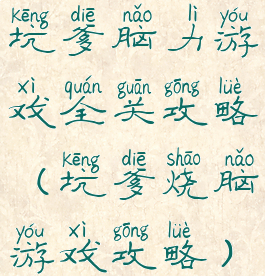 kēng diē nǎo lì yóu
坑爹脑力游
xì quán guān gōng lüè
戏全关攻略
kēng diē shāo nǎo
（坑爹烧脑
yóu xì gōng lüè
游戏攻略）